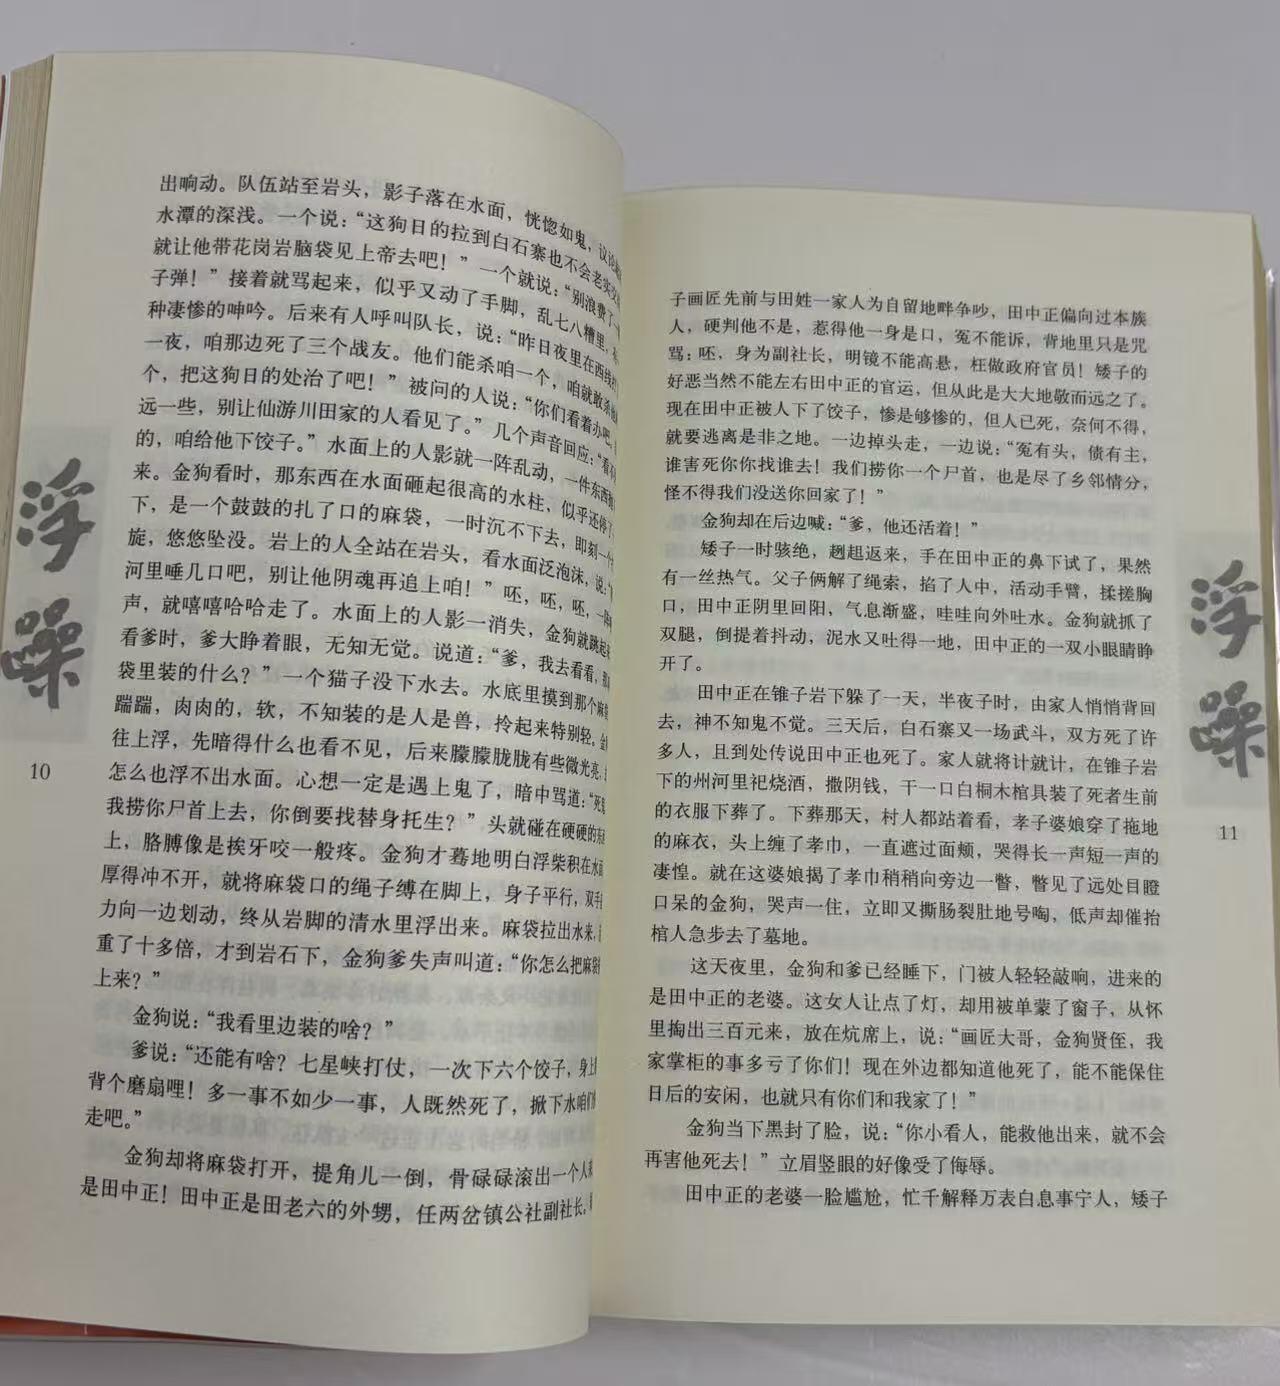 出响动。队伍站至岩头，影子落在水面，恍惚如鬼，议论
水潭的深浅。一个说：“这狗日的拉到白石寨也不会老实交
就让他带花岗岩脑袋见上帝去吧！”一个就说：“别浪费了一
子弹！”接着就骂起来，似乎又动了手脚，乱七八糟里，
种凄惨的呻吟。后来有人呼叫队长，说：“昨日夜里在西线
一夜，咱那边死了三个战友。他们能杀咱一个，咱就敢杀他
个，把这狗日的处治了吧！”被问的人说：“你们看着办吧，
远一些，别让仙游川田家的人看见了。”几个声音回应：“看不
的，咱给他下饺子。”水面上的人影就一阵乱动，一件东西
来。金狗看时，那东西在水面砸起很高的水柱，似乎还停了
下，是一个鼓鼓的扎了口的麻袋，一时沉不下去，即刻一个
旋，悠悠坠没。岩上的人全站在岩头，看水面泛泡沫，说：“
河里唾几口吧，别让他阴魂再追上咱！”呸，呸，呸，一阵
声，就嘻嘻哈哈走了。水面上的人影一消失，金狗就跳起
看爹时，爹大睁着眼，无知无觉。说道：“爹，我去看看，那
袋里装的什么？”一个猫子没下水去。水底里摸到那个麻
踹踹，肉肉的，软，不知装的是人是兽，拎起来特别轻。金
往上浮，先暗得什么也看不见，后来朦朦胧胧有些微光亮，
怎么也浮不出水面。心想一定是遇上鬼了，暗中骂道：“死
我捞你尸首上去，你倒要找替身托生？”头就碰在硬硬的东
上，胳膊像是挨牙咬一般疼。金狗才蓦地明白浮柴积在水面
厚得冲不开，就将麻袋口的绳子缚在脚上，身子平行，双手
力向一边划动，终从岩脚的清水里浮出来。麻袋拉出水来，
重了十多倍，才到岩石下，金狗爹失声叫道：“你怎么把麻袋
上来？”
金狗说：“我看里边装的啥？”
爹说：“还能有啥？七星峡打仗，一次下六个饺子，身上
背个磨扇哩！多一事不如少一事，人既然死了，掀下水咱们
走吧。”
金狗却将麻袋打开，提角儿一倒，骨碌碌滚出一个人
是田中正！田中正是田老六的外甥，任两岔镇公社副社长。
浮
躁
10
子画匠先前与田姓一家人为自留地畔争吵，田中正偏向过本族
人，硬判他不是，惹得他一身是口，冤不能诉，背地里只是咒
骂：呸，身为副社长，明镜不能高悬，枉做政府官员！矮子的
好恶当然不能左右田中正的官运，但从此是大大地敬而远之了。
现在田中正被人下了饺子，惨是够惨的，但人已死，奈何不得，
就要逃离是非之地。一边掉头走，一边说：“冤有头，债有主，
谁害死你你找谁去！我们捞你一个尸首，也是尽了乡邻情分，
怪不得我们没送你回家了！”
金狗却在后边喊：“爹，他还活着！”
矮子一时骇绝，趔趄返来，手在田中正的鼻下试了，果然
有一丝热气。父子俩解了绳索，掐了人中，活动手臂，揉搓胸
口，田中正阴里回阳，气息渐盛，哇哇向外吐水。金狗就抓了
双腿，倒提着抖动，泥水又吐得一地，田中正的一双小眼睛睁
开了。
田中正在锥子岩下躲了一天，半夜子时，由家人悄悄背回
去，神不知鬼不觉。三天后，白石寨又一场武斗，双方死了许
多人，且到处传说田中正也死了。家人就将计就计，在锥子岩
下的州河里祀烧酒，撒阴钱，干一口白桐木棺具装了死者生前
的衣服下葬了。下葬那天，村人都站着看，孝子婆娘穿了拖地
的麻衣，头上缠了孝巾，一直遮过面颊，哭得长一声短一声的
凄惶。就在这婆娘揭了孝巾稍稍向旁边一瞥，瞥见了远处目瞪
口呆的金狗，哭声一住，立即又撕肠裂肚地号啕，低声却催抬
棺人急步去了墓地。
这天夜里，金狗和爹已经睡下，门被人轻轻敲响，进来的
是田中正的老婆。这女人让点了灯，却用被单蒙了窗子，从怀
里掏出三百元来，放在炕席上，说：“画匠大哥，金狗贤侄，我
家掌柜的事多亏了你们！现在外边都知道他死了，能不能保住
日后的安闲，也就只有你们和我家了！”
金狗当下黑封了脸，说：“你小看人，能救他出来，就不会
再害他死去！”立眉竖眼的好像受了侮辱。
田中正的老婆一脸尴尬，忙千解释万表白息事宁人，矮子
浮
躁
11